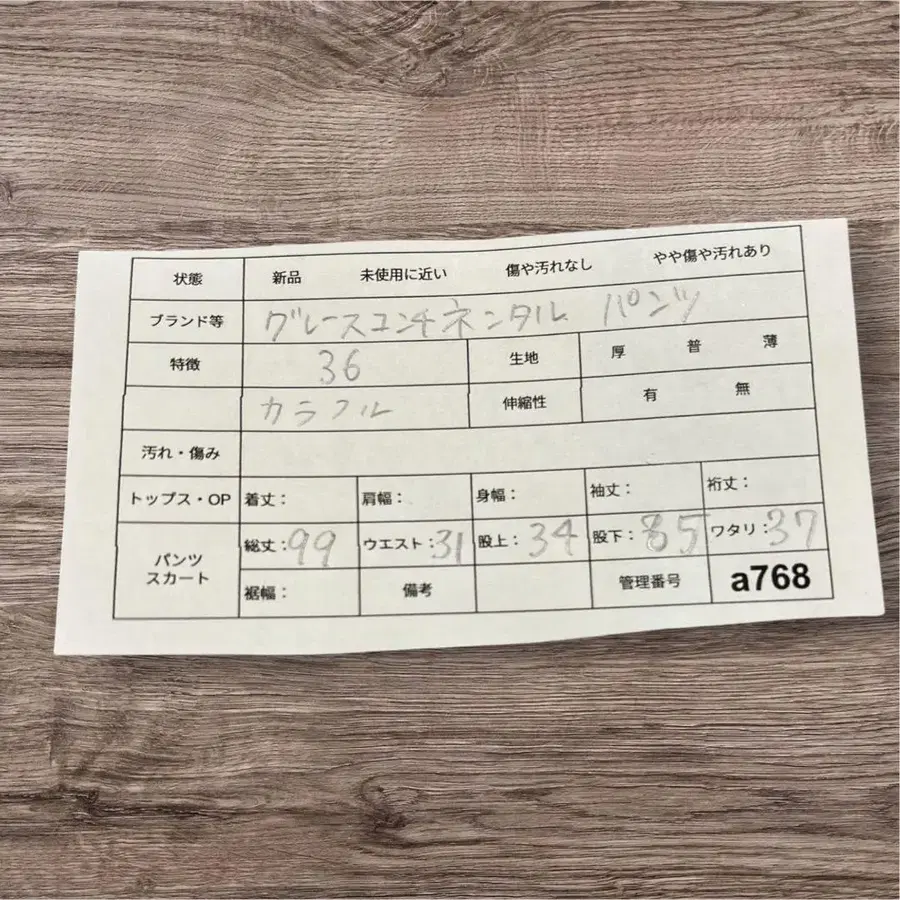 状態 新品 未使用に近い 傷や汚れなし やや傷や汚れあり
ブランド等 グレースコンチネンタル パンツ
特徴 36 生地 厚 普 薄
カラフル 伸縮性 有 無
汚れ・傷み
トップス・OP 着丈: 肩幅: 身幅: 袖丈: 裄丈:
パンツ スカート 総丈:99 ウエスト:31 股上:34 股下: ワタリ:37
裾幅: 備考 管理番号 a768